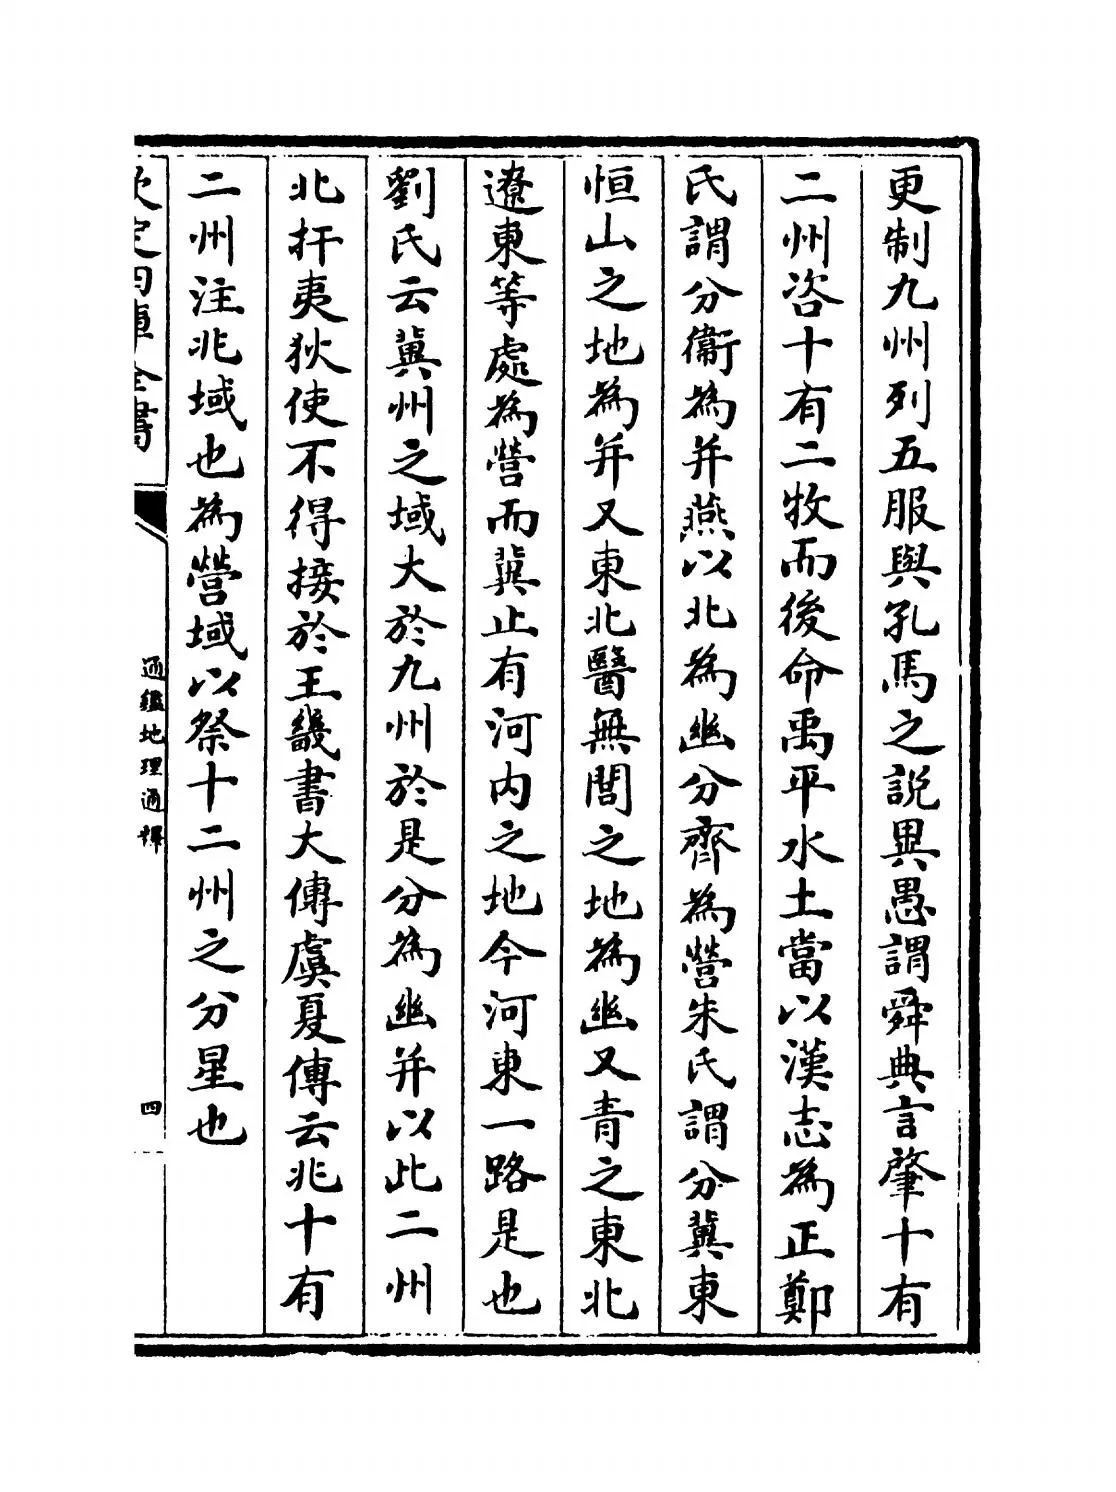 更制九州列五服與孔馬之說異愚謂舜典言肇十有
二州咨十有二牧而後命禹平水土當以漢志為正鄭
氏謂分衞為并燕以北為幽分齊為營朱氏謂分冀東
恒山之地為并又東北醫無閭之地為幽又青之東北
遼東等處為營而冀止有河内之地今河東一路是也
劉氏云冀州之域大於九州於是分為幽并以此二州
北扞夷狄使不得接於王畿書大傳虞夏傳云兆十有
二州注兆域也為營域以祭十二州之分星也
欽定四庫全書
通鑑地理通釋
四